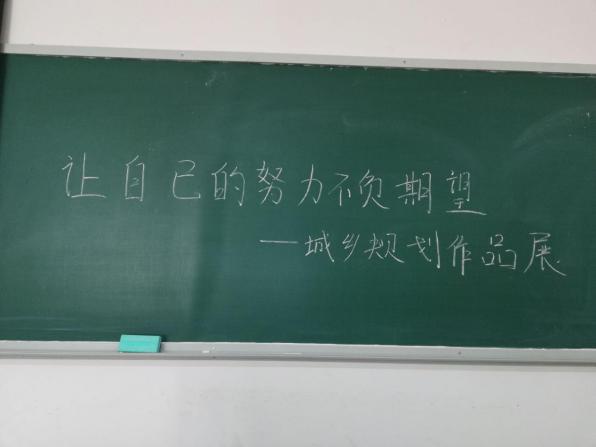 让自己的努力不负期望
—城乡规划作品展